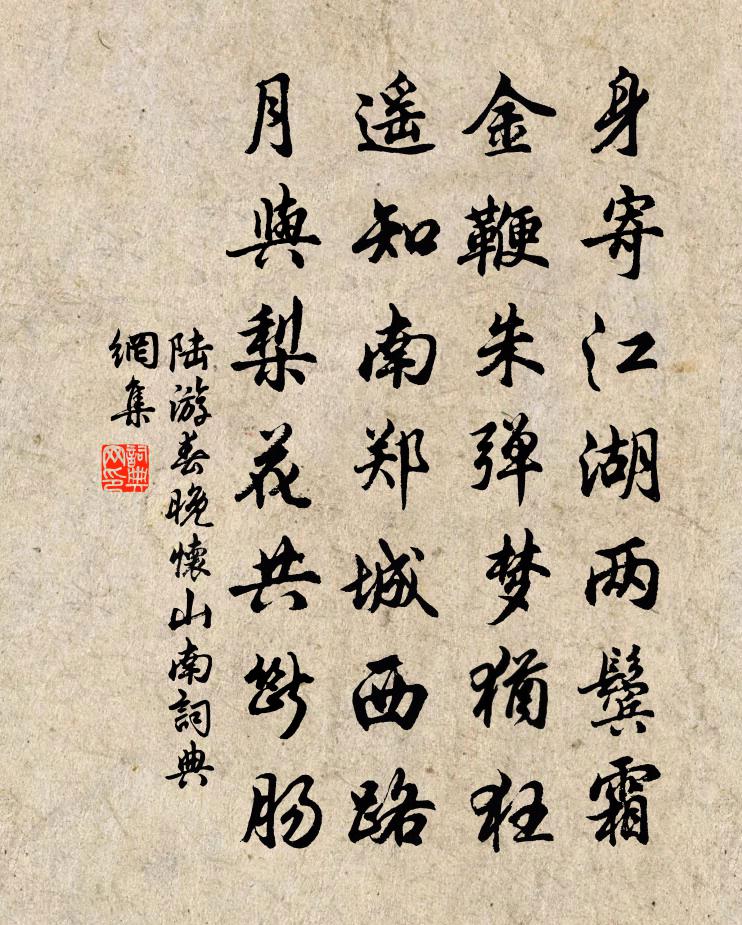 身寄江湖两鬓霜
金鞭朱弹梦猶狂
遥知南郑城西路
月與梨花共断肠
陆游春晚懷山南詞典
網集
詞典
网印